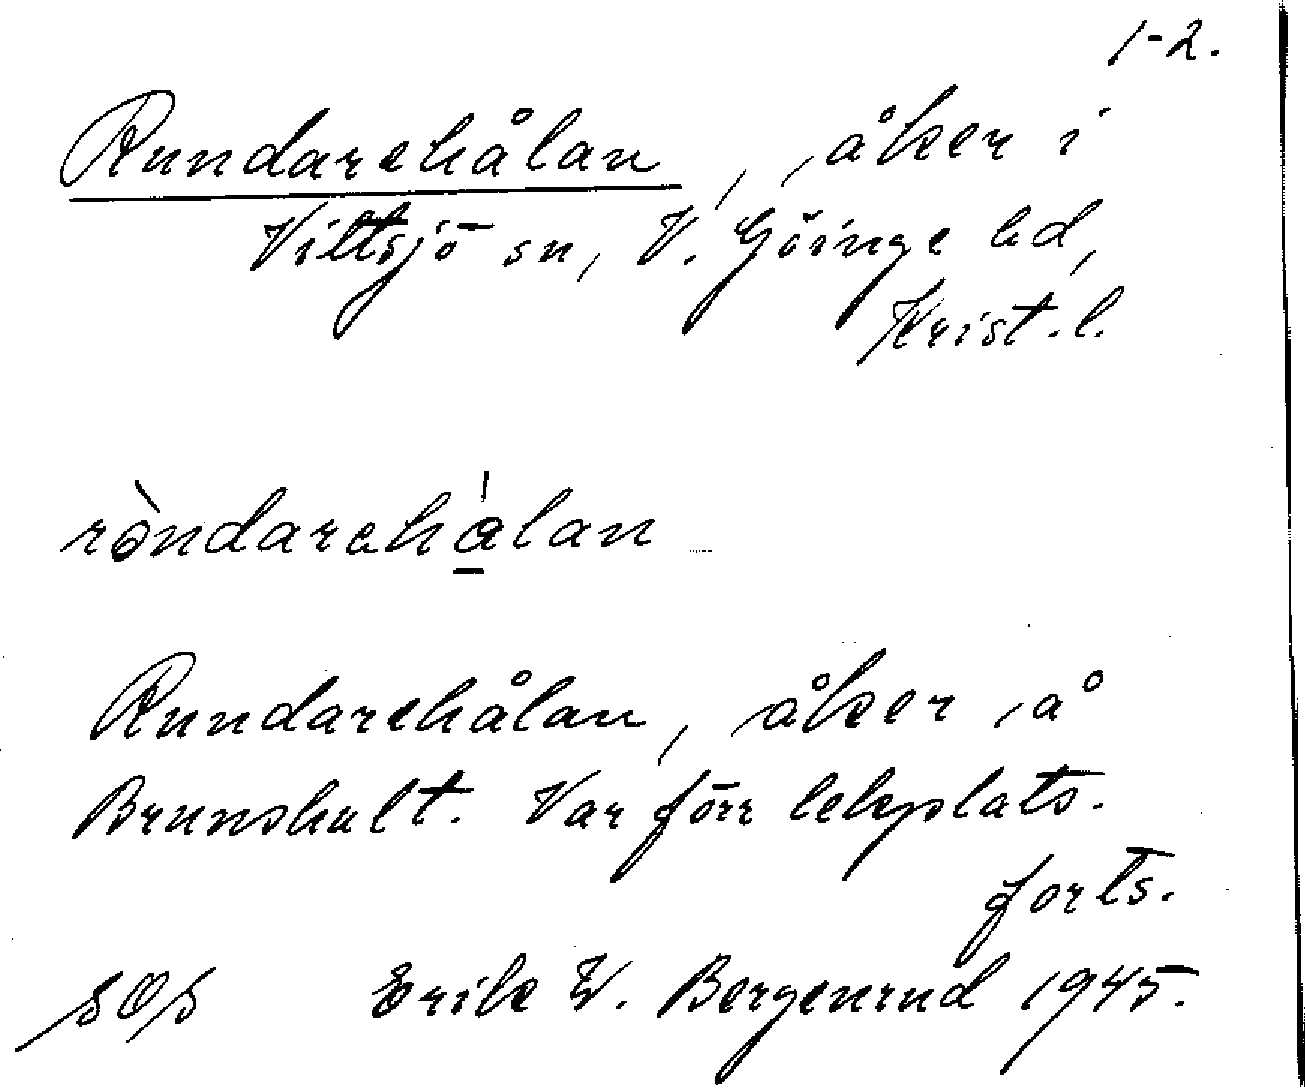 1-2.
Rundarehålan, åker i
Vittsjö sn, V. Göinge hd,
Krist. l.
ròndarehålan
Rundarehålan, åker å
Brunshult. Var förr lekplats.
forts.
SOS Erik W. Bergenrud 1945.